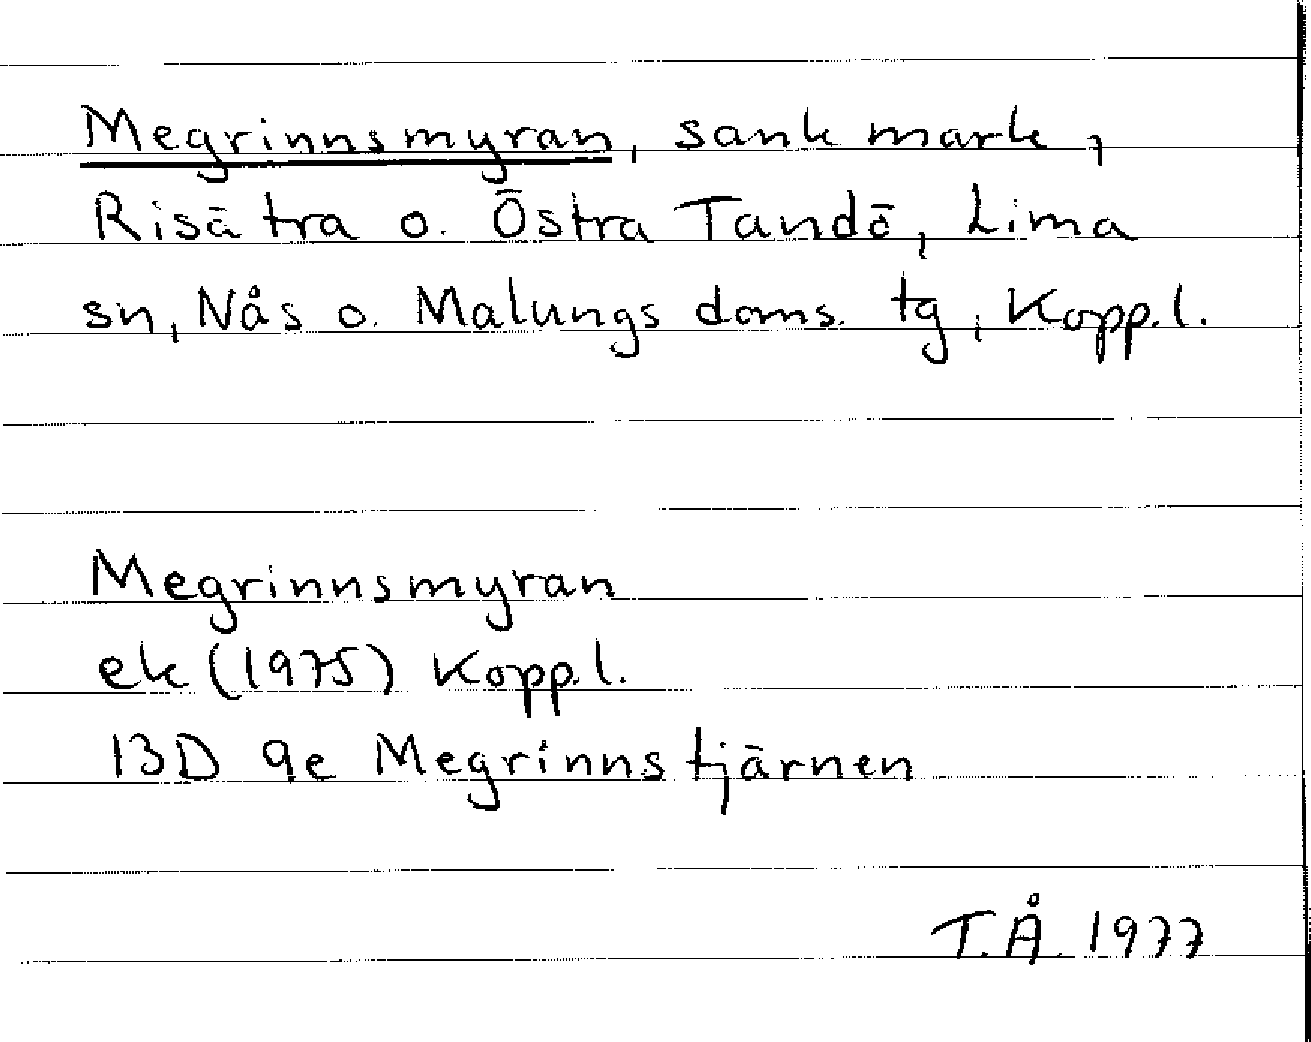 Megrinnsmyran, sank mark,
Risätra o. Östra Tandö, Lima
sn, Nås o. Malungs doms. tg, Kopp.l.
Megrinnsmyran
ek (1975) Kopp.l.
13D 9e Megrinnstjärnen
T.Å. 1977